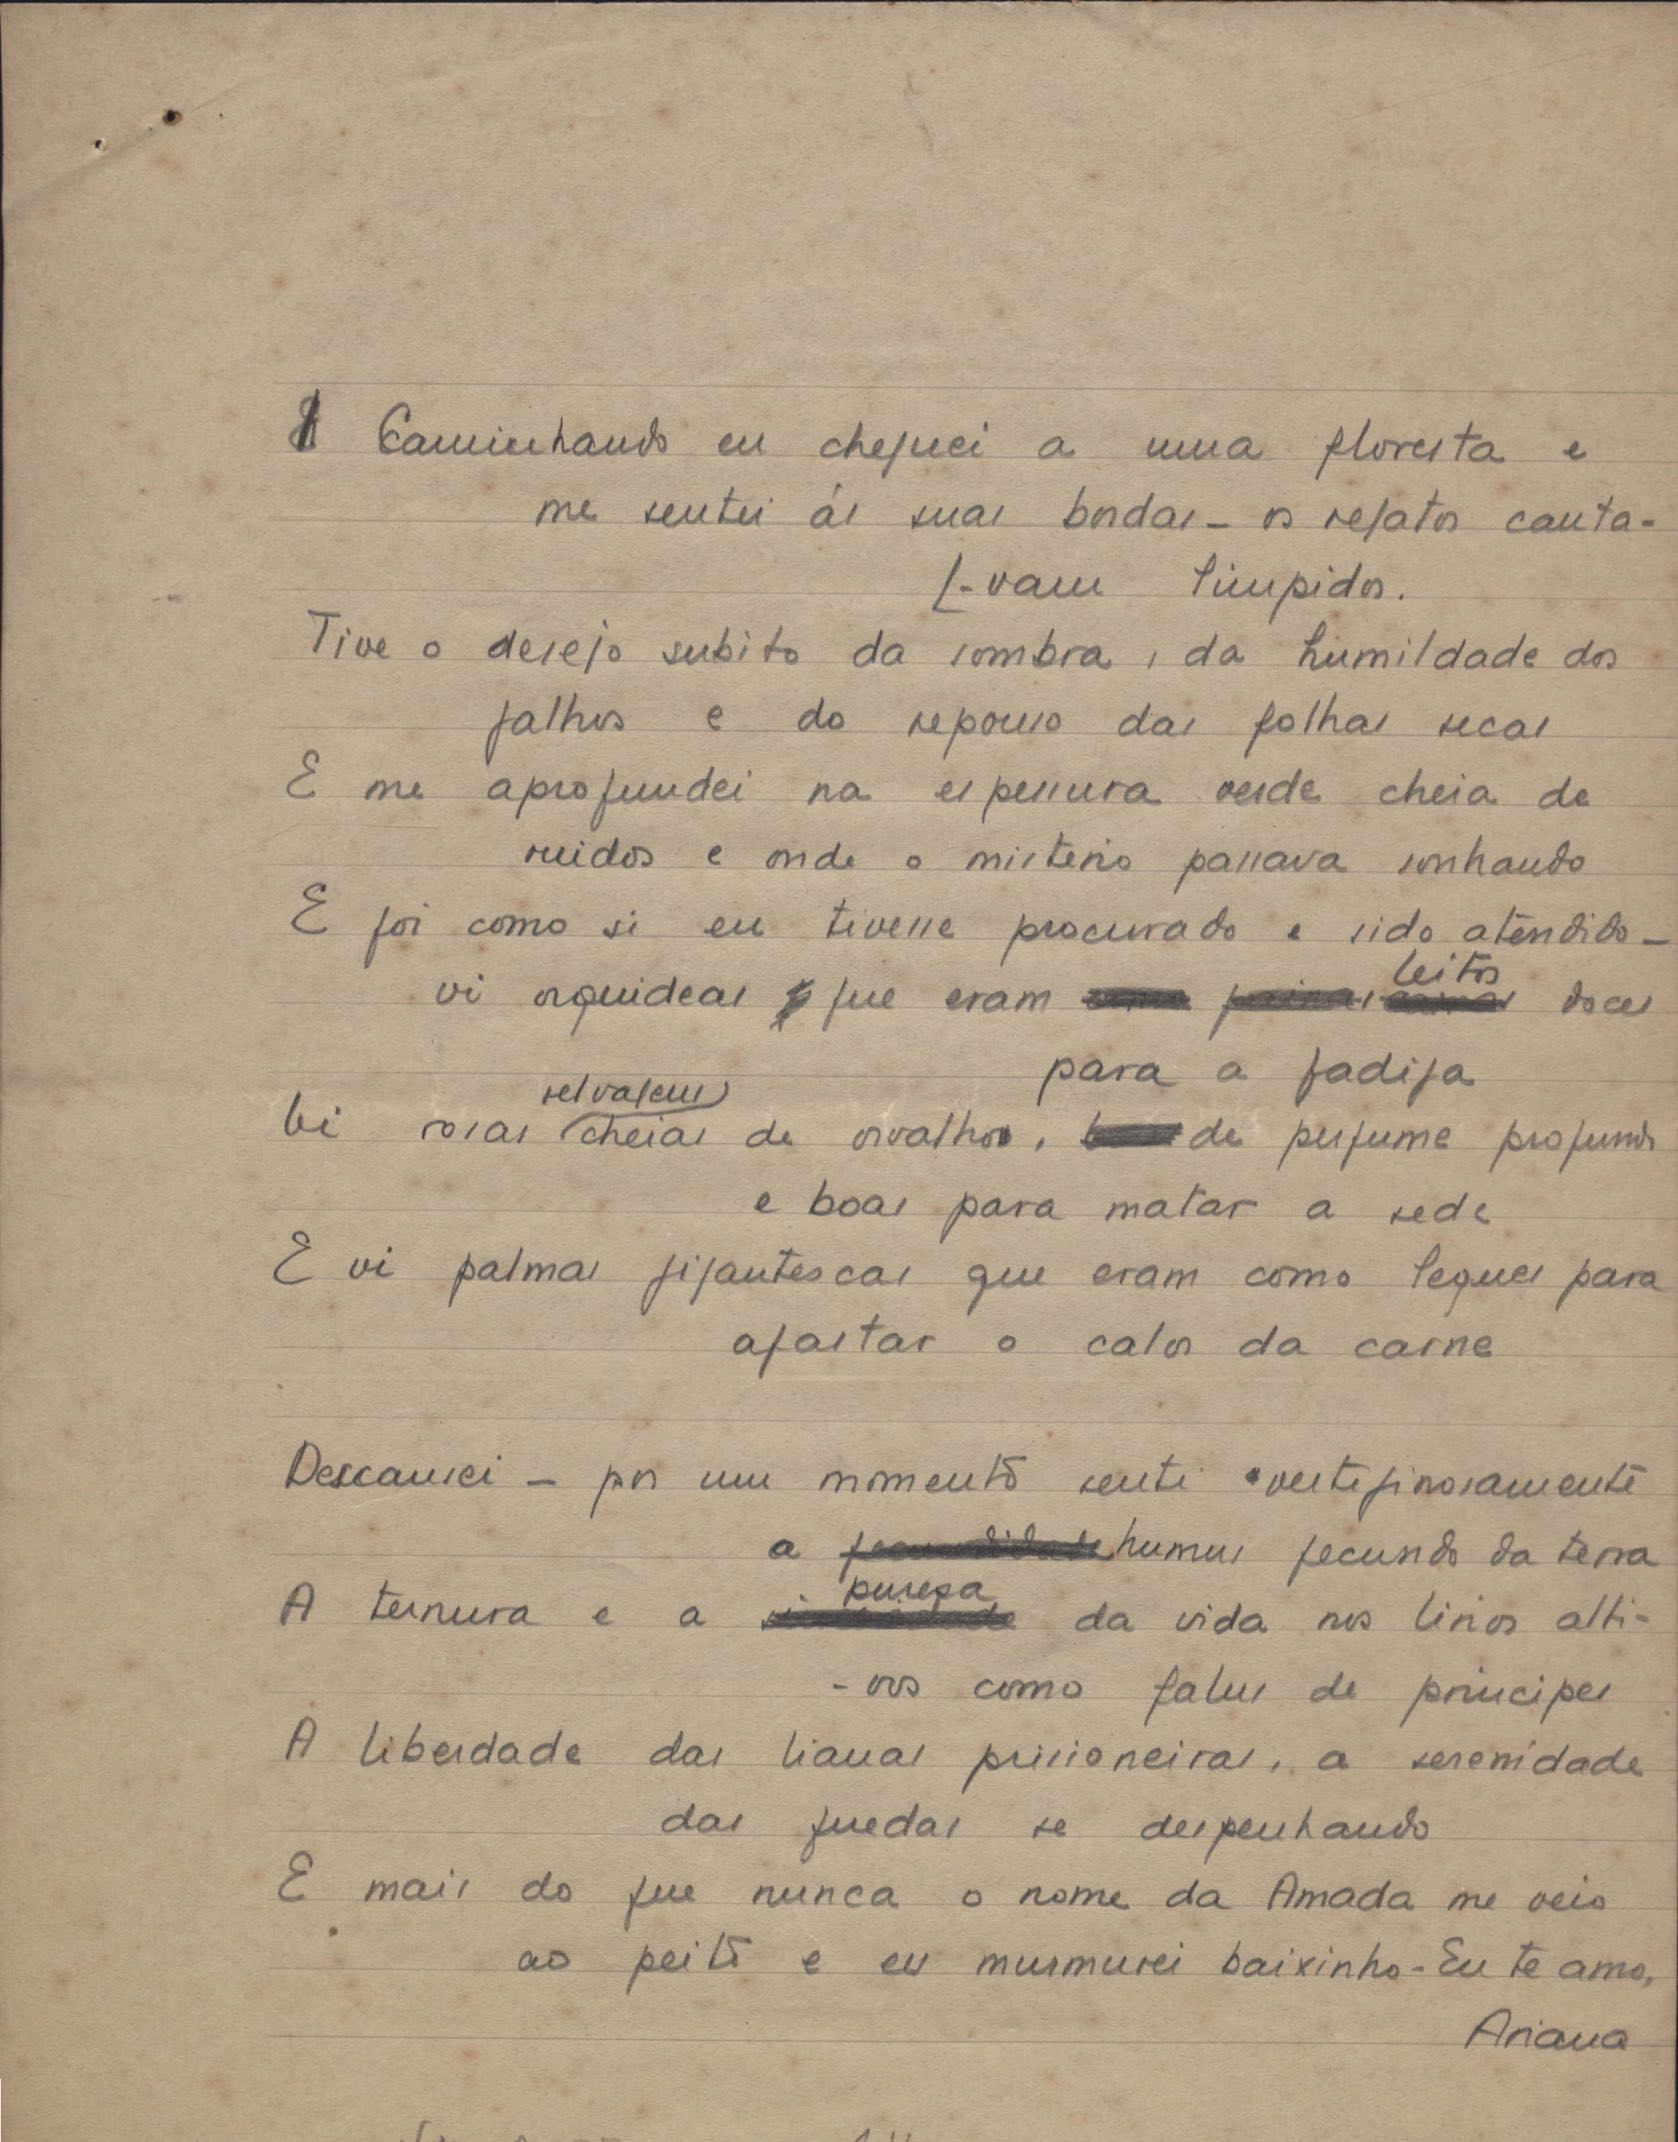 Caminhando eu cheguei a uma floresta e
me sentei ás suas bordas - os regatos canta-
[-vam limpidos.
Tive o desejo subito da sombra, da humildade dos
galhos e do repouso das folhas secas
E me aprofundei na espessura verde cheia de
ruidos e onde o misterio passava sonhando
E foi como si eu tivesse procurado e sido atendido -
leitos
vi orquideas que eram doces
para a fadiga
selvagens
Vi rosas cheias de orvalho, de perfume profundo
e boas para matar a sede
E vi palmas gigantescas que eram como leques para
afastar o calor da carne
Descansei - por um momento senti vertiginosamente
a humus fecundo da terra
pureza
A ternura e a da vida nos lirios alti-
-vos como falus de principes
A liberdade das lianas prisioneiras, a serenidade
das quedas se despenhando
E mais do que nunca o nome da Amada me veio
ao peito e eu murmurei baixinho - Eu te amo,
Ariana